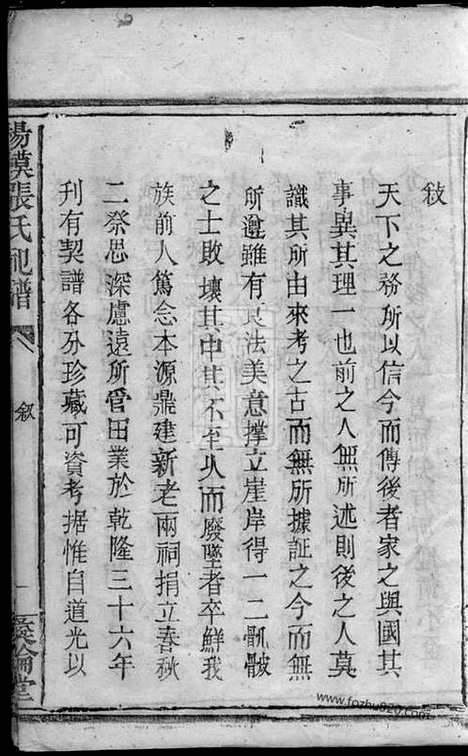 敍
天下之務所以信今而傳後者家之與國其
事異其理一也前之人無所述則後之人莫
識其所由來考之古而無所據証之今而無
所遵雖有良法美意撑立崖岸得一二骯髒
之士敗壞其中其不至久而廢墜者卒鮮我
族前人篤念本源鼎建新老兩祠捐立春秋
二祭思深慮遠所管田業於乾隆三十六年
刋有契譜各分珍藏可資考据惟自道光以
張氏祀譜
敘
一
倫堂
www.fozhu920.com